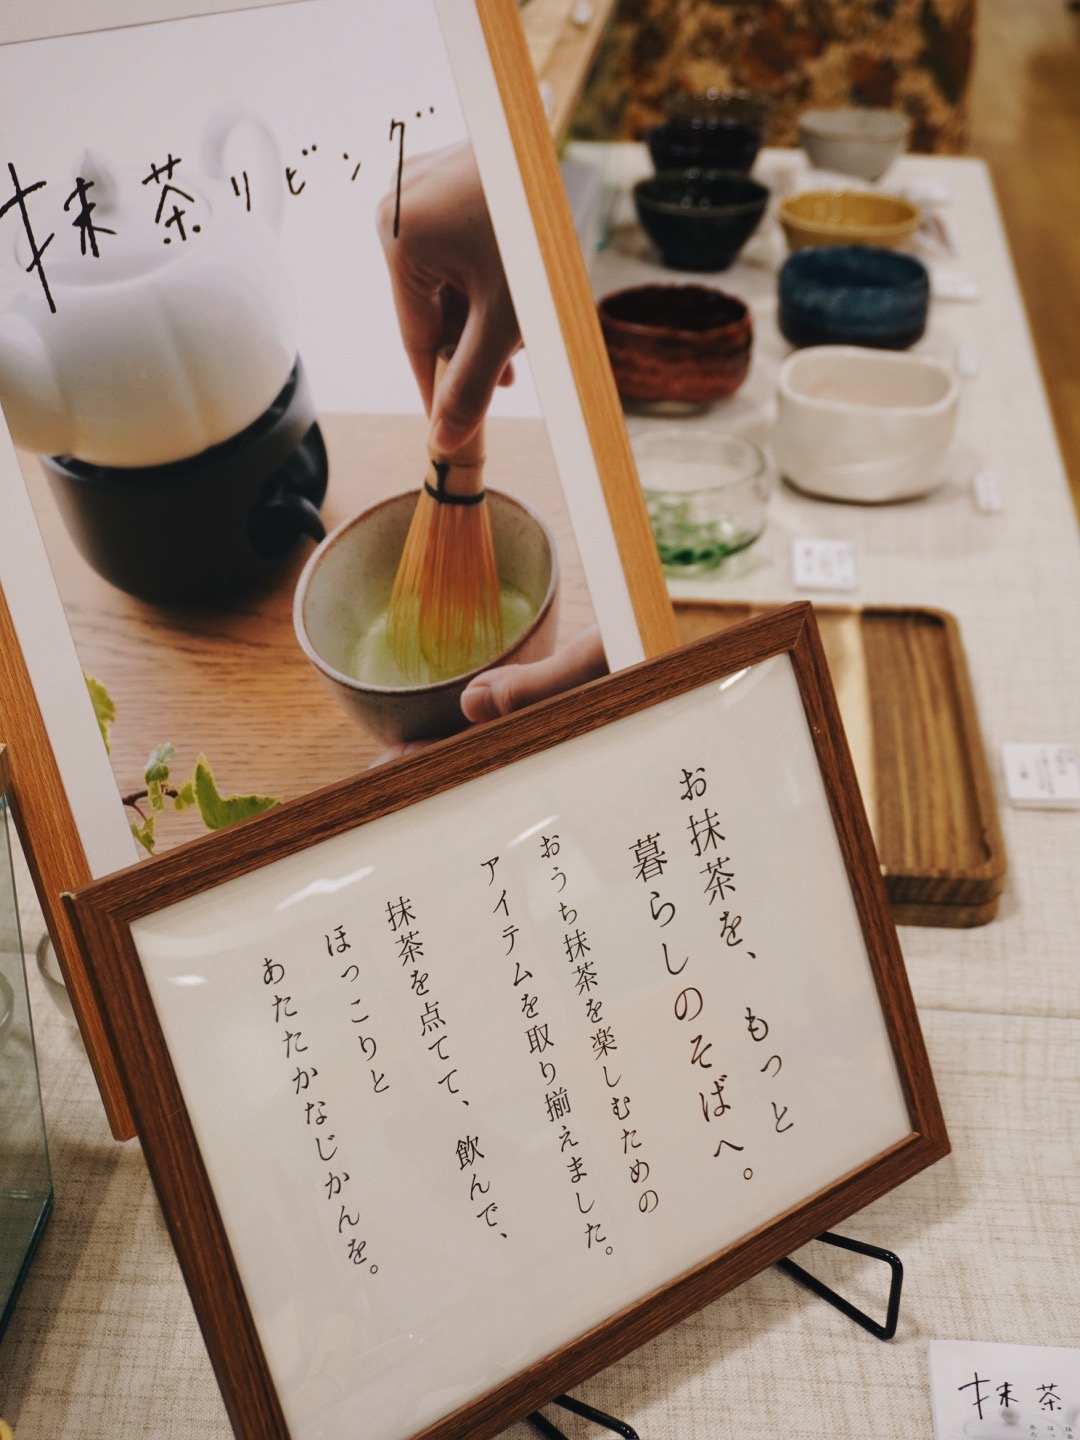 抹茶リビング
お抹茶を、もっと
暮らしのそばへ。
おうち抹茶を楽しむための
アイテムを取り揃えました。
抹茶を点てて、飲んで、
ほっこりと
あたたかなじかんを。
抹茶